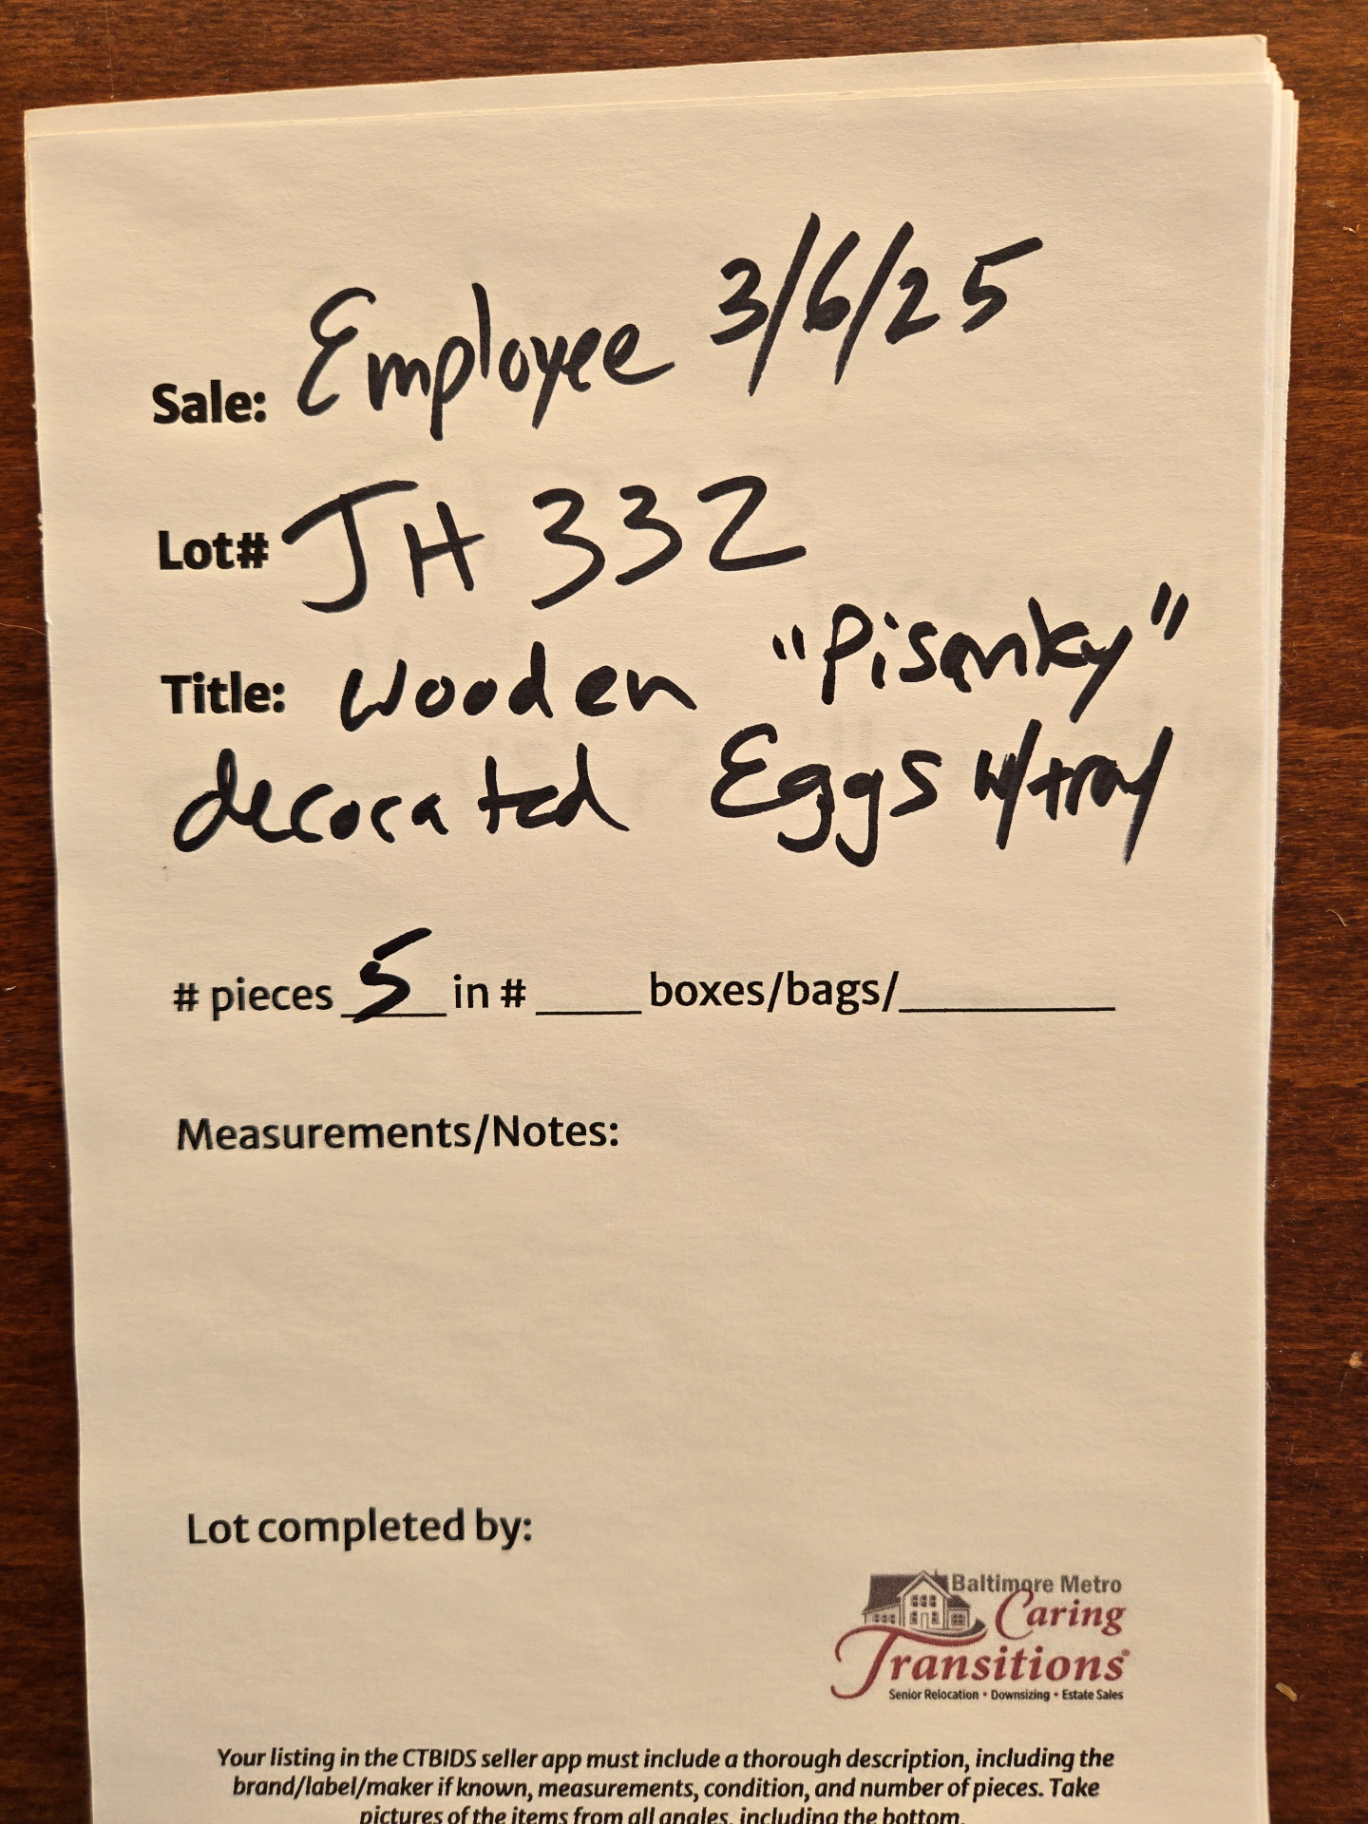 Sale: Employee 3/6/25
Lot# JH 332
Title: Wooden "Pisanky"
decorated Eggs w/tray
# pieces 5 in # ____ boxes/bags/__________
Measurements/Notes:
Lot completed by:
Baltimore Metro
Caring
Transitions®
Senior Relocation • Downsizing • Estate Sales
Your listing in the CTBIDS seller app must include a thorough description, including the
brand/label/maker if known, measurements, condition, and number of pieces. Take
pictures of the items from all angles, including the bottom.